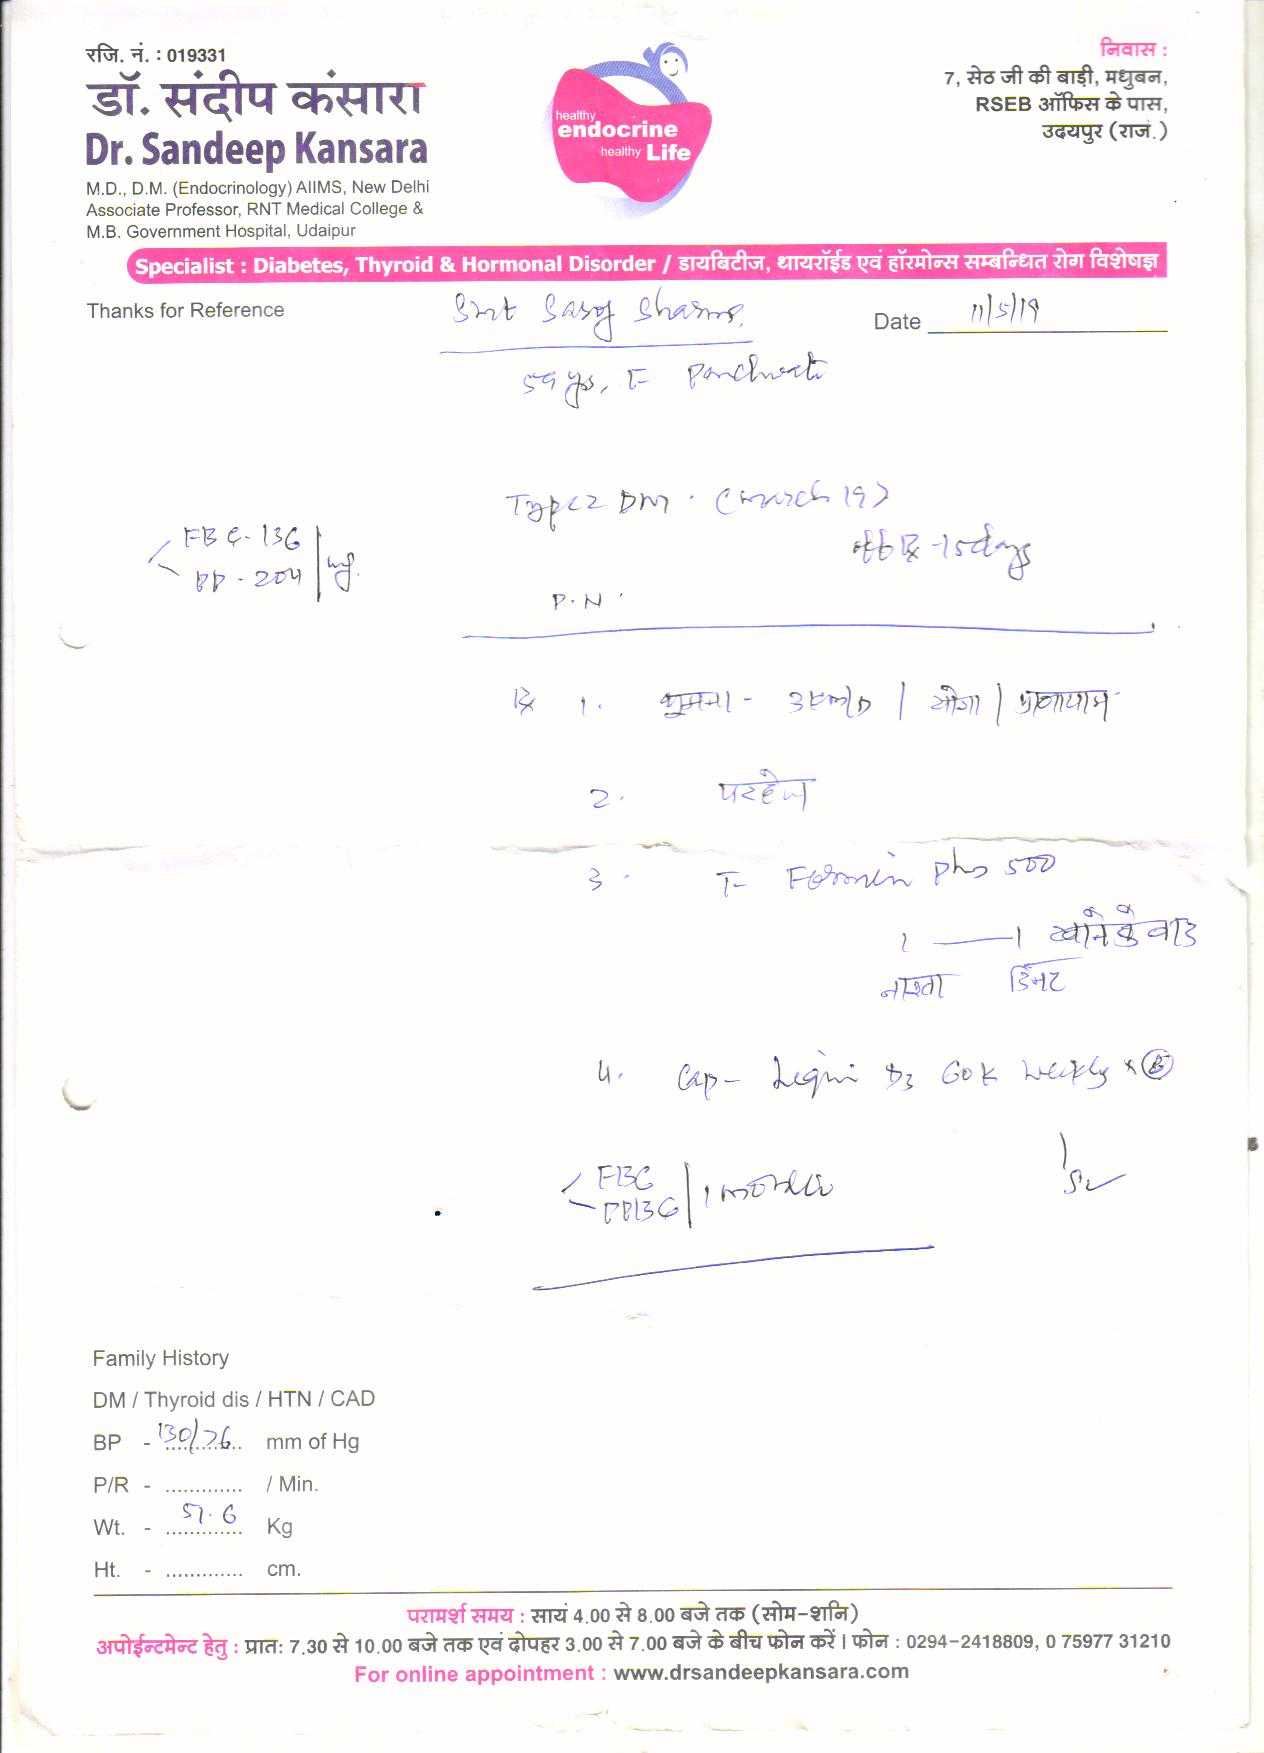 रजि. नं. : 019331
डॉ. संदीप कंसारा
Dr. Sandeep Kansara
M.D., D.M. (Endocrinology) AIIMS, New Delhi
Associate Professor, RNT Medical College &
M.B. Government Hospital, Udaipur
healthy
endocrine
healthy Life
निवास :
7, सेठ जी की बाड़ी, मधुबन,
RSEB ऑफिस के पास,
उदयपुर (राज.)
Specialist : Diabetes, Thyroid & Hormonal Disorder / डायबिटीज, थायरॉईड एवं हॉरमोन्स सम्बन्धित रोग विशेषज्ञ
Thanks for Reference
Smt Saroj Sharma.
Date 11/5/19
59 yrs, F Panchwati
Type 2 DM . (March 19)
off Rx - 15 days
FBG - 136
PP - 204 mg.
P.N.
Rx 1. घूमना - 3 km/D | योगा | प्राणायाम
2. परहेज
3. T- Formin plus 500
1 —— 1 खाने के बाद
नाश्ता डिनर
4. Cap - D3 60K weekly x 8
FBG
PPBG 1 month
Family History
DM / Thyroid dis / HTN / CAD
BP - 130/76 mm of Hg
P/R - ............. / Min.
Wt. - 57.6 Kg
Ht. - ............. cm.
परामर्श समय : सायं 4.00 से 8.00 बजे तक (सोम-शनि)
अपोईन्टमेन्ट हेतु : प्रात: 7.30 से 10.00 बजे तक एवं दोपहर 3.00 से 7.00 बजे के बीच फोन करें । फोन : 0294-2418809, 0 75977 31210
For online appointment : www.drsandeepkansara.com